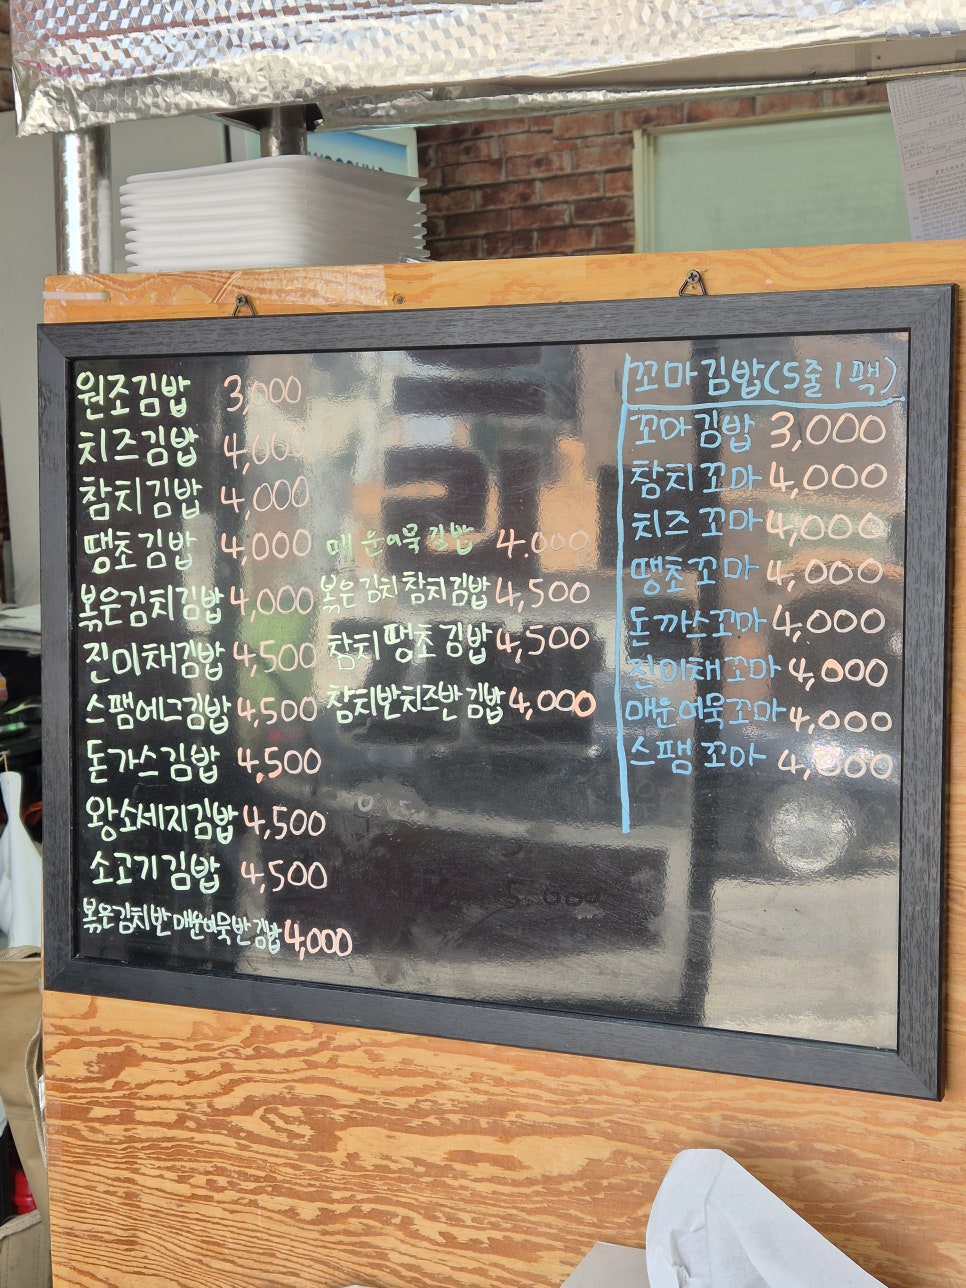 원조김밥 3,000
치즈김밥 4,000
참치김밥 4,000
땡초김밥 4,000
볶은김치김밥 4,000
진미채김밥 4,500
스팸에그김밥 4,500
돈가스김밥 4,500
왕소세지김밥 4,500
소고기김밥 4,500
볶은김치반매운어묵반김밥 4,000
매운어묵김밥 4.000
볶은김치참치김밥 4,500
참치땡초김밥 4,500
참치반치즈반김밥 4,000
꼬마김밥(5줄1팩)
꼬마김밥 3,000
참치꼬마 4,000
치즈꼬마 4,000
땡초꼬마 4,000
돈가스꼬마 4,000
진미채꼬마 4,000
매운어묵꼬마 4,000
스팸꼬마 4,000
5.000